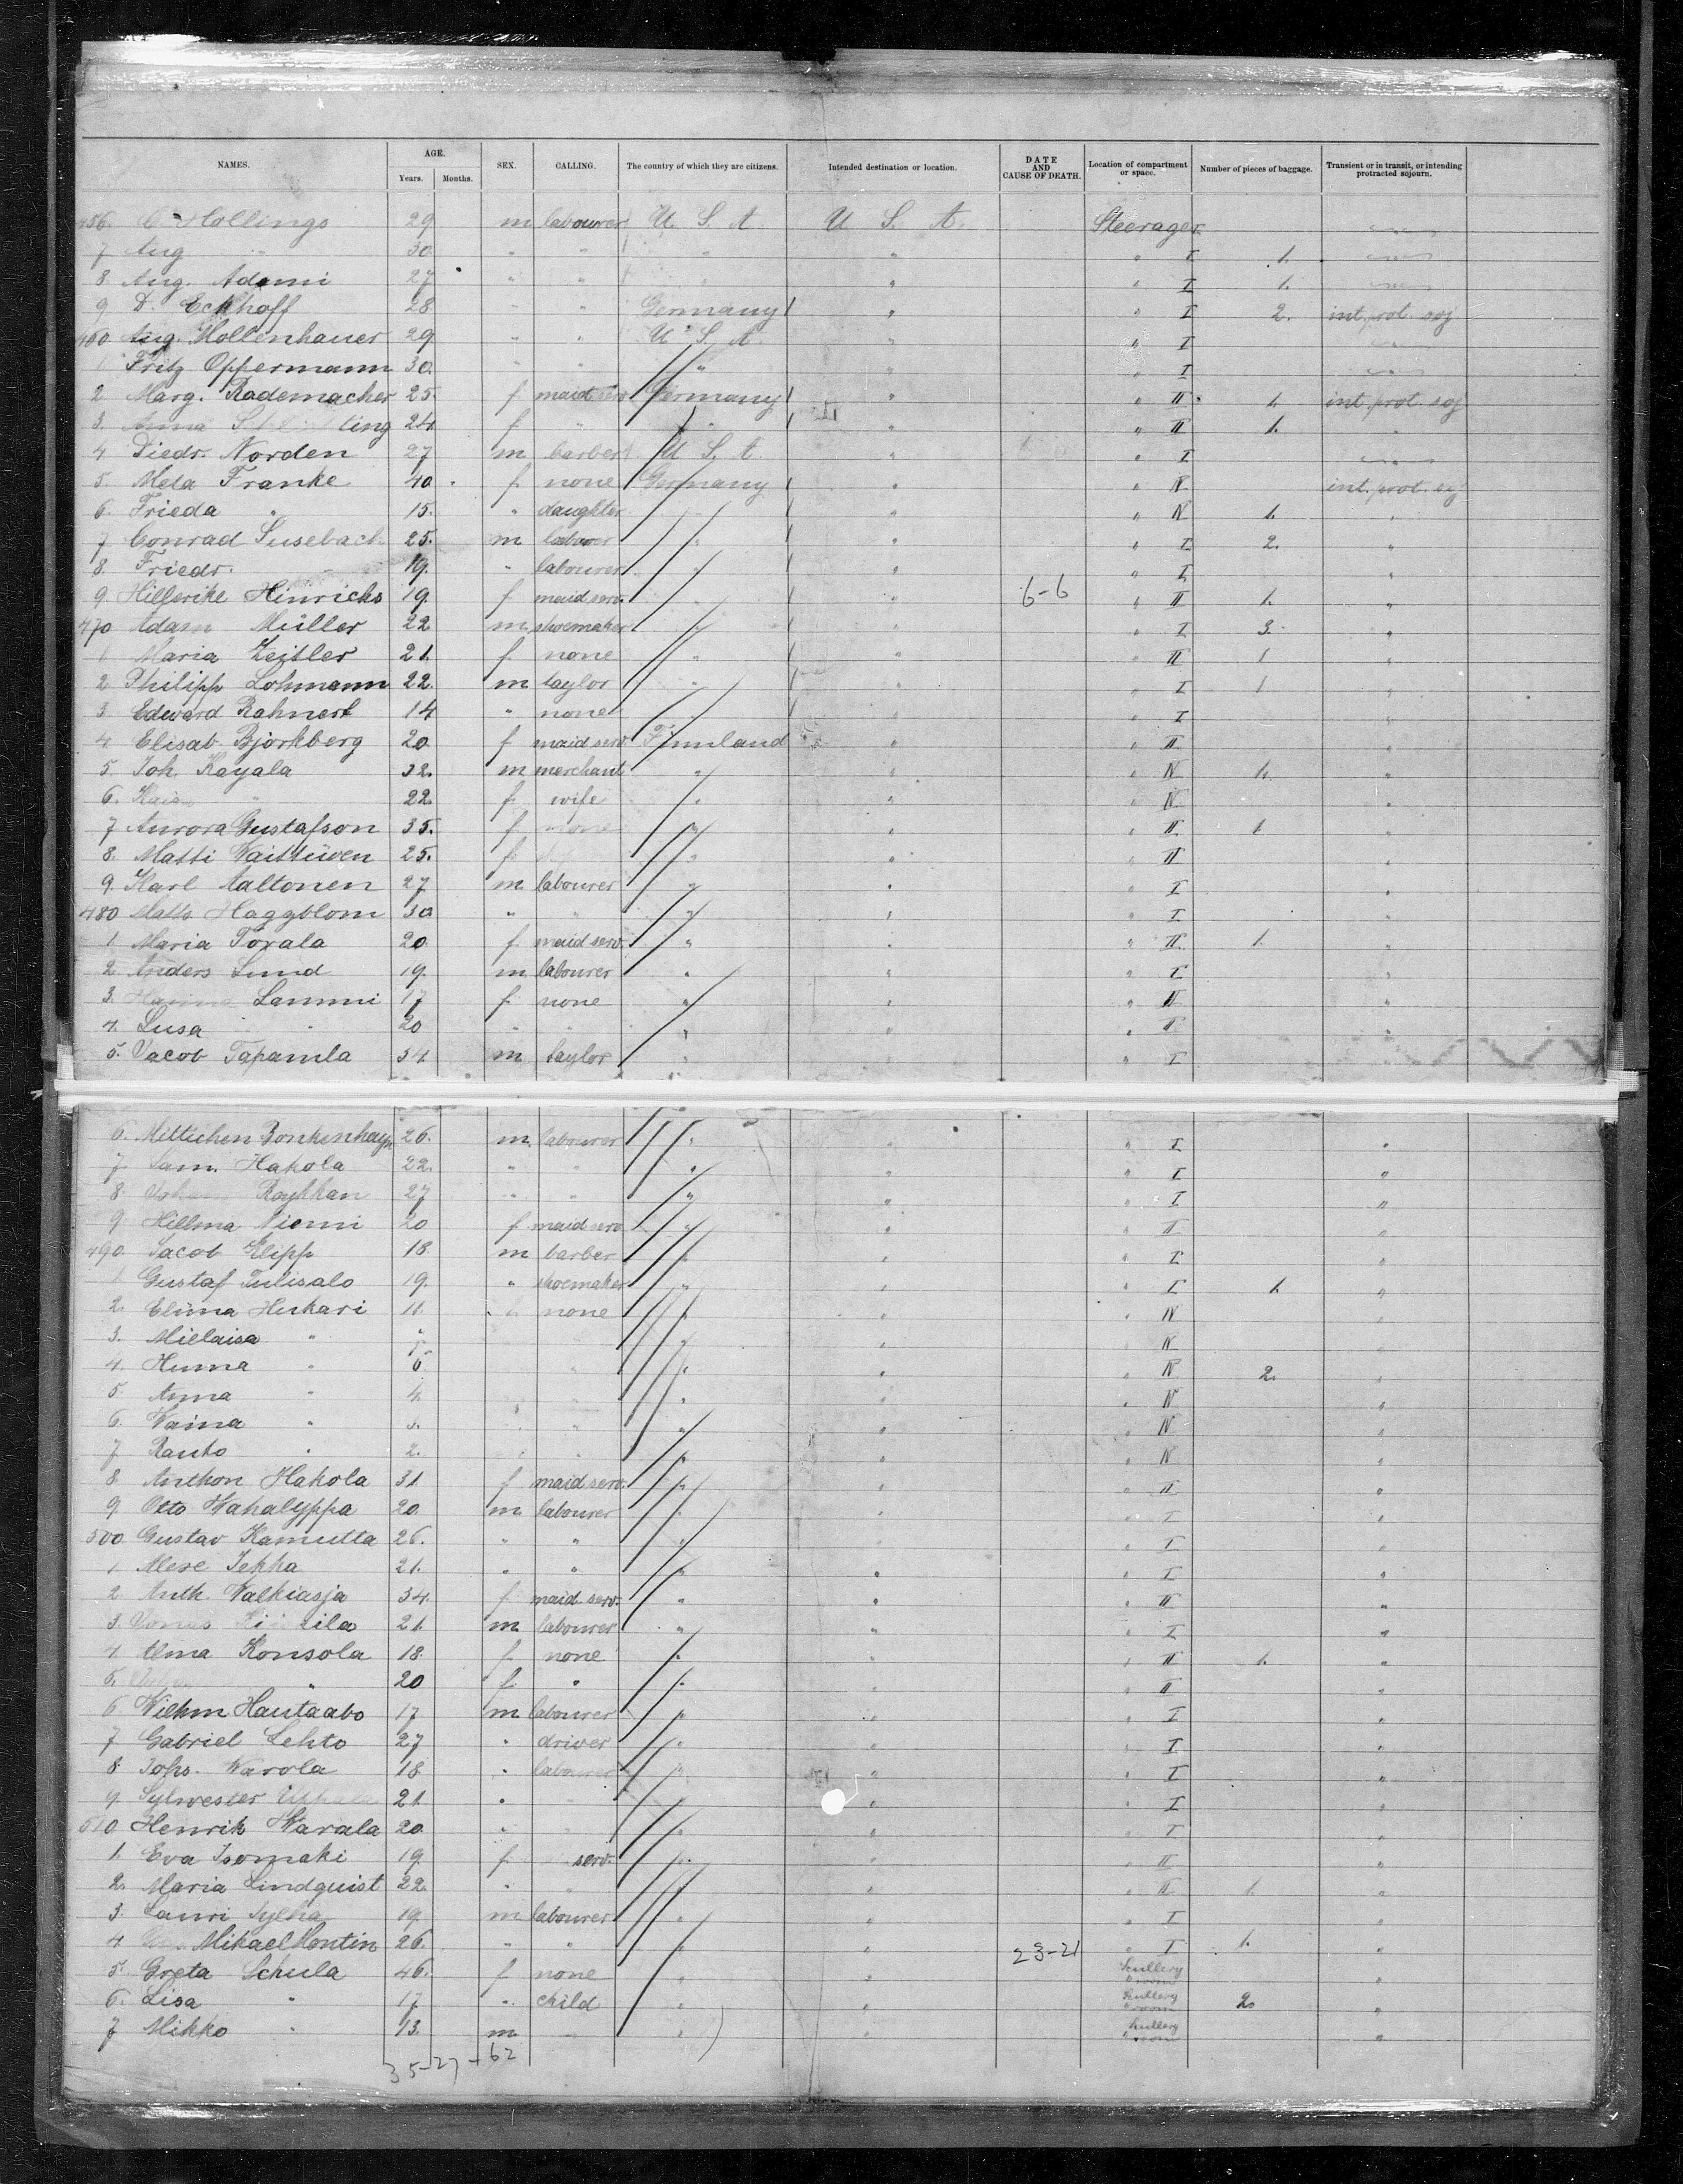 NAMES. AGE. Years. Months. SEX. CALLING. The country of which they are citizens. Intended destination or location. DATE AND CAUSE OF DEATH. Location of compartment or space. Number of pieces of baggage. Transient or in transit, or intending protracted sojourn.
456. C Hollings 29 m labourer U. S. A. U. S. A. Steerage
7 Aug " 30 " " " " " I 1.
8. Aug. Adami 27 " " " " I 1.
9. D. Eckhoff 28 " " Germany " " I 2. int. prot. soj
460 Aug. Mollenhauer 29 " " U. S. A. " " I
1 Fritz Oppermann 30. " " " " I
2. Marg. Rademacher 25. f maid serv Germany " " II 1. int. prot. soj
3. Anna 24. f " " " " II 1. "
4 Diedr. Norden 27 m barber U. S. A. " " I
5. Meta Franke 40 f none Germany " " IV int. prot. soj
6. Frieda " 15. " daughter " " IV 1. "
7 Conrad Susebach 25. m labourer " " " I 2. "
8. Friedr. " 19. " labourer " " " I "
9. Hillerike Hinrichs 19. f maid serv. " 6-6 " II 1. "
470 Adam Müller 22 m shoemaker " " " I 3. "
1 Maria Zeitler 21. f none " " " II 1 "
2 Philipp Lohmann 22. m taylor " " " I 1 "
3 Edward Rahnert 14 " none " " I "
4 Elisab. Bjorkberg 20 f maid serv Finnland " " II "
5. Joh. Kayala 32. m merchant " " " IV 1. "
6. " 22. f wife " " " IV "
7 Aurora Gustafson 35. f none " " " II 1. "
8. Matti 25. f " " " II "
9. Karl Aaltonen 27 m labourer " " " I "
480 Matts Haggblom 30 " " " " " I "
1 Maria Torala 20 f maid serv. " " " II 1. "
2. Anders Lund 19. m labourer " " " I "
3. Lammi 17 f none " " " II "
4. Lusa " 20 " " " " " II "
5. Jacob Tapamla 34 m taylor " " " I "
6. 26. m labourer " " " I "
7. Sam. Hakola 22. " " " " " I "
8. 27 " " " " " I "
9 Hillma Niemi 20 f maid serv " " " II "
490. Jacob Klipp 18. m barber " " " I "
1 Gustaf Tulisalo 19. " shoemaker " " " I 1. "
2. Elima Huhari 11. " none " " " IV "
3. Mielaisa " " " IV "
4. Huma " 6 " " " " IV 2. "
5. Anna " 4. " " " IV "
6. Waina " " " " " IV "
7 Rauto " 2. " " " " IV "
8. Anthon Hakola 31 f maid serv. " " " II "
9. Otto Wahalyppa 20. m labourer " " " I "
500 Gustav Kamutta 26. " " " " " I "
1 21. " " " " " I "
2 Anth. Walkiasja 34. f maid serv. " " " II "
3. 21. m labourer " " " I "
4. Alma Konsola 18. f none " " " II 1. "
5. " 20 f " " " " II "
6 Wilhm Hautaabo 17 m labourer " " " I "
7 Gabriel Lehto 27 " driver " " " I "
8. Johs. Warola 18 " labourer " " " I "
9. Sylwester 21. " " " I "
510 Henrik Warala 20. " " " " " I "
1. Eva Isomaki 19. f serv. " " " II "
2. Maria Lindquist 22. " " " " " II 1. "
3. Lauri 19. m labourer " " " I "
4 Mikael Kontin 26. " " " " 23-21 " I 1. "
5. Greta Schula 46. f none " " Scullery room "
6. Lisa " 17 " child " " Scullery room 2. "
7 Mikko " 13. m " " " Scullery room "
35-27-62